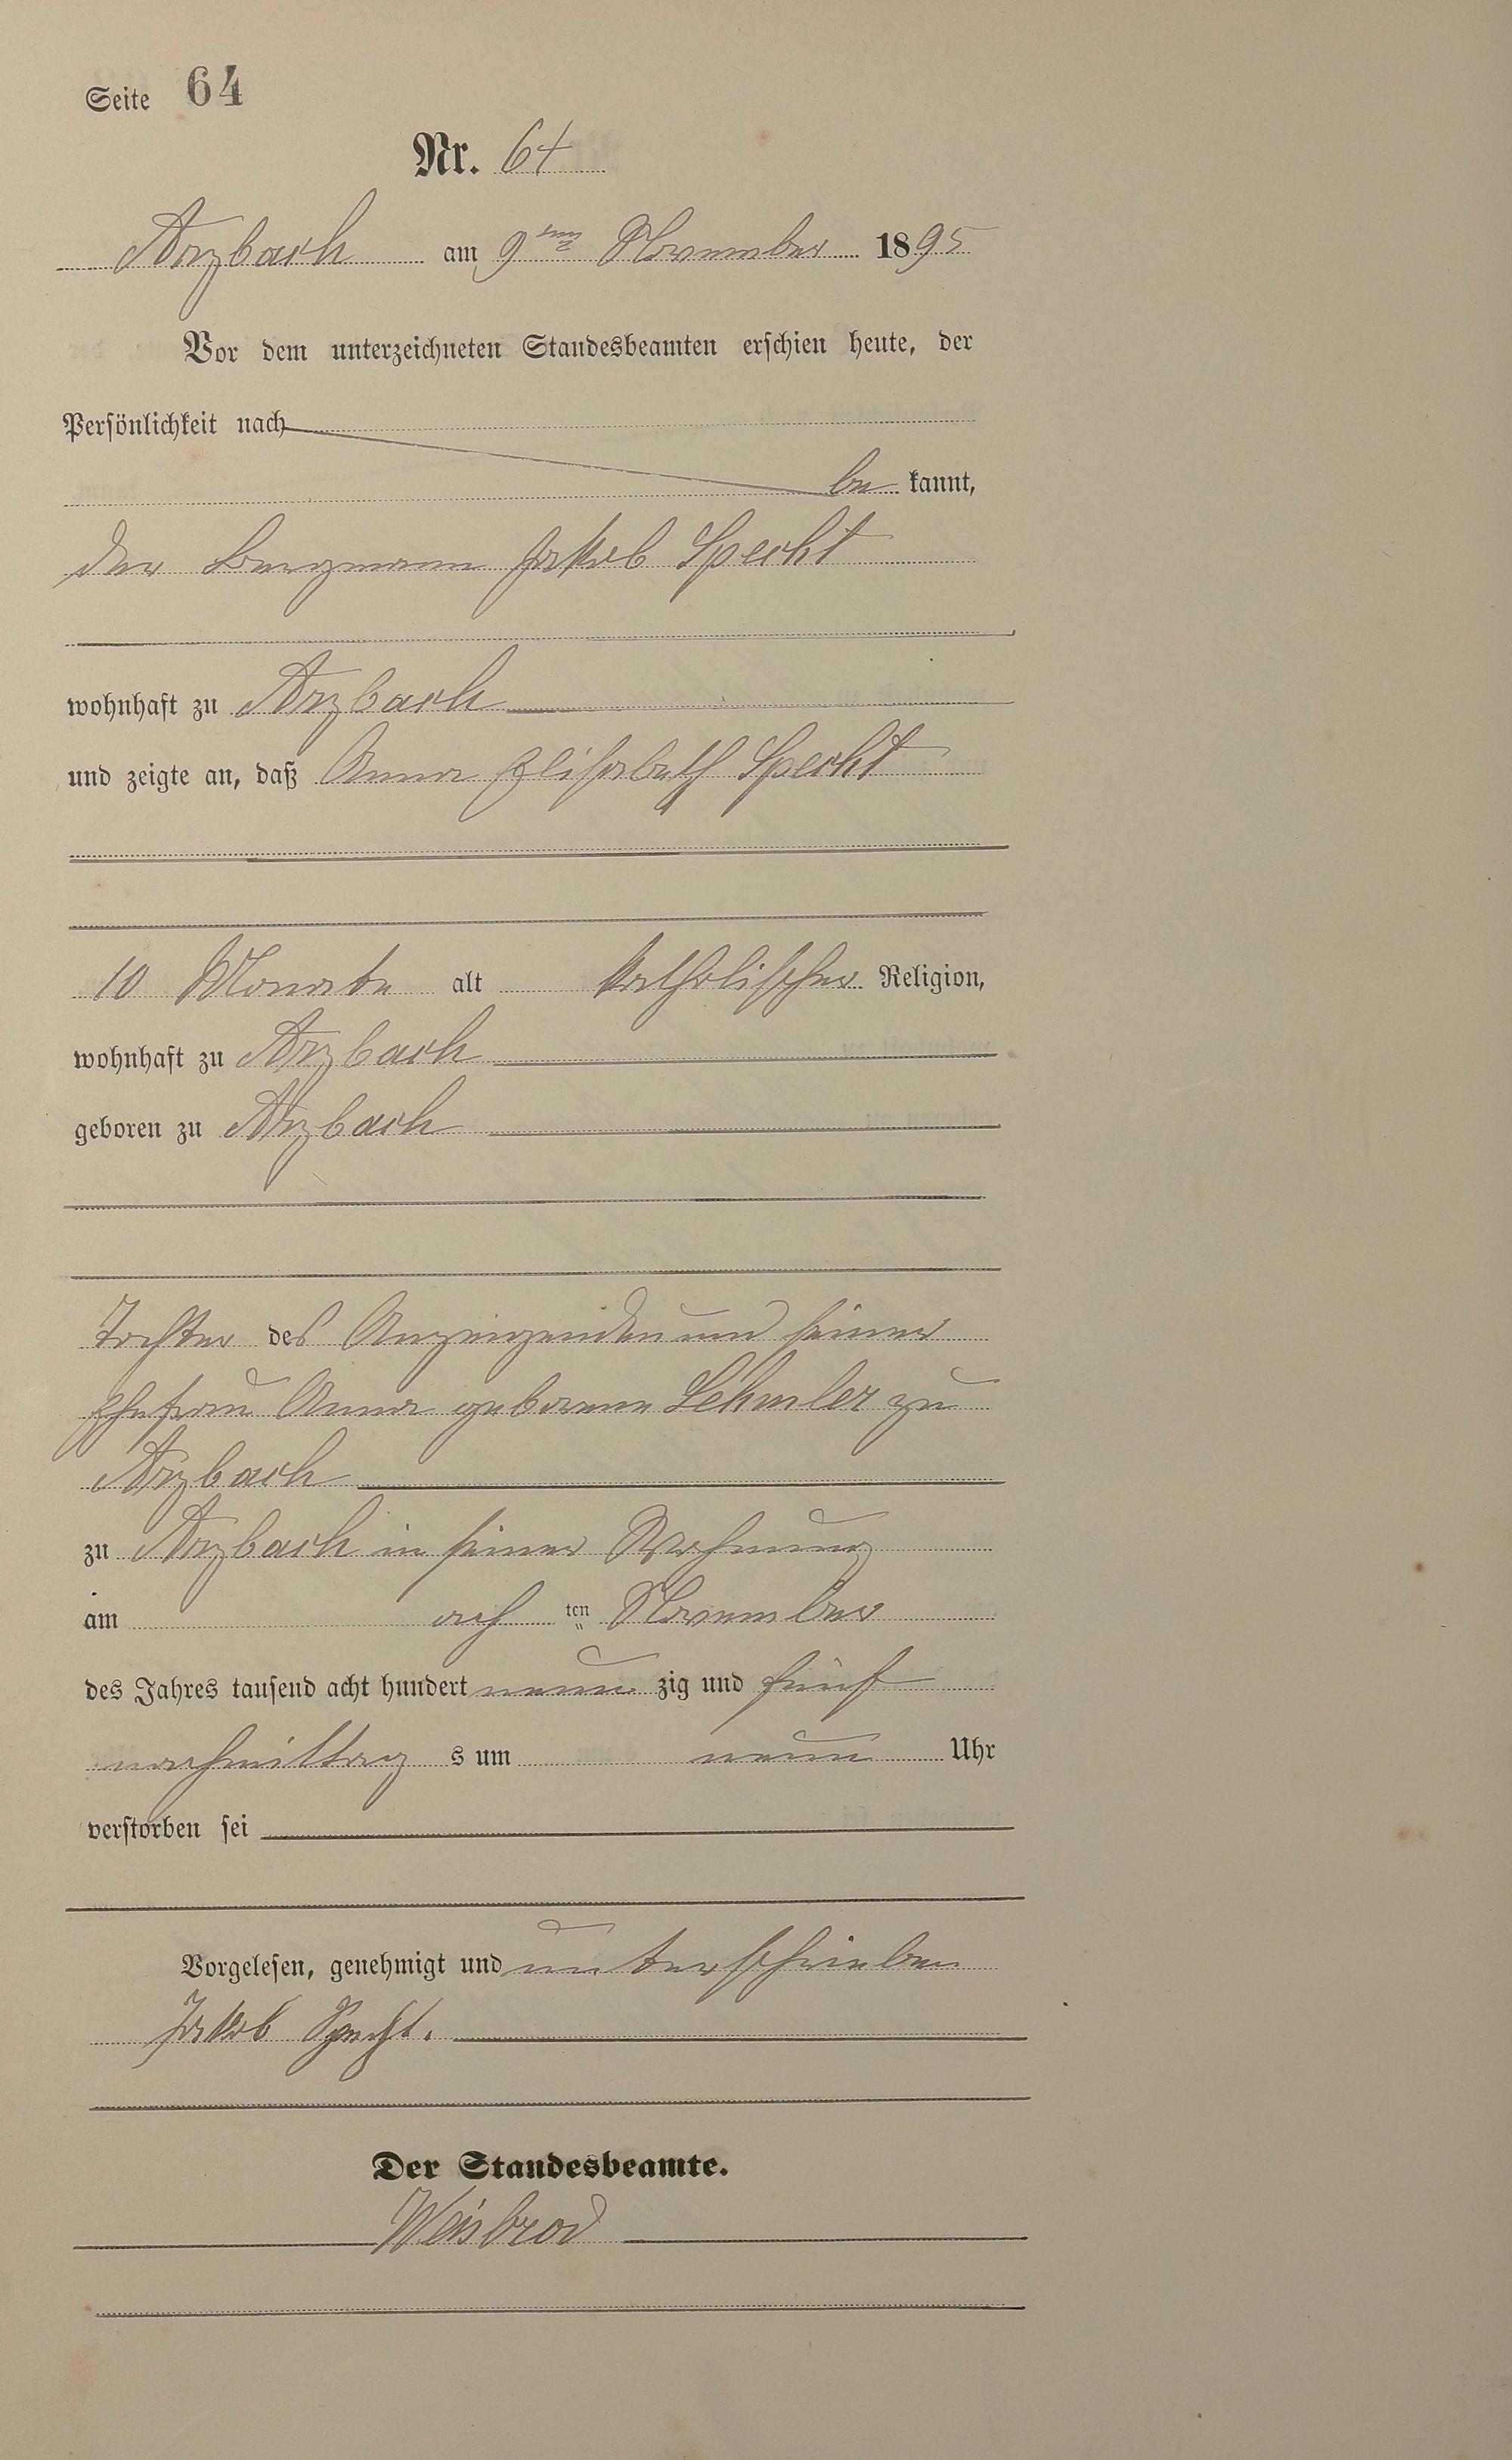 Seite 64
Nr. 64
Arzbach am 9ten November 1895
Vor dem unterzeichneten Standesbeamten erschien heute, der
Persönlichkeit nach
be kannt,
der Bergmann Jakob Specht
wohnhaft zu Arzbach
und zeigte an, daß Anna Elisabeth Specht
10 Monate alt katholischer Religion,
wohnhaft zu Arzbach
geboren zu Arzbach
Tochter des Anzeigenden und seiner
Ehefrau Anna geborene Lehmler zu
Arzbach
zu Arzbach in seiner Wohnung
am ach ten November
des Jahres tausend acht hundert neun zig und fünf
nachmittag s um neun Uhr
verstorben sei
Vorgelesen, genehmigt und unterschrieben
Jakob Specht.
Der Standesbeamte.
Weisbrod